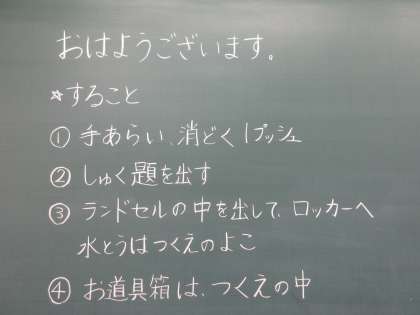 おはようございます。
☆すること
① 手あらい、消どく1プッシュ
② しゅく題を出す
③ ランドセルの中を出して、ロッカーへ
水とうはつくえのよこ
④ お道具箱は、つくえの中